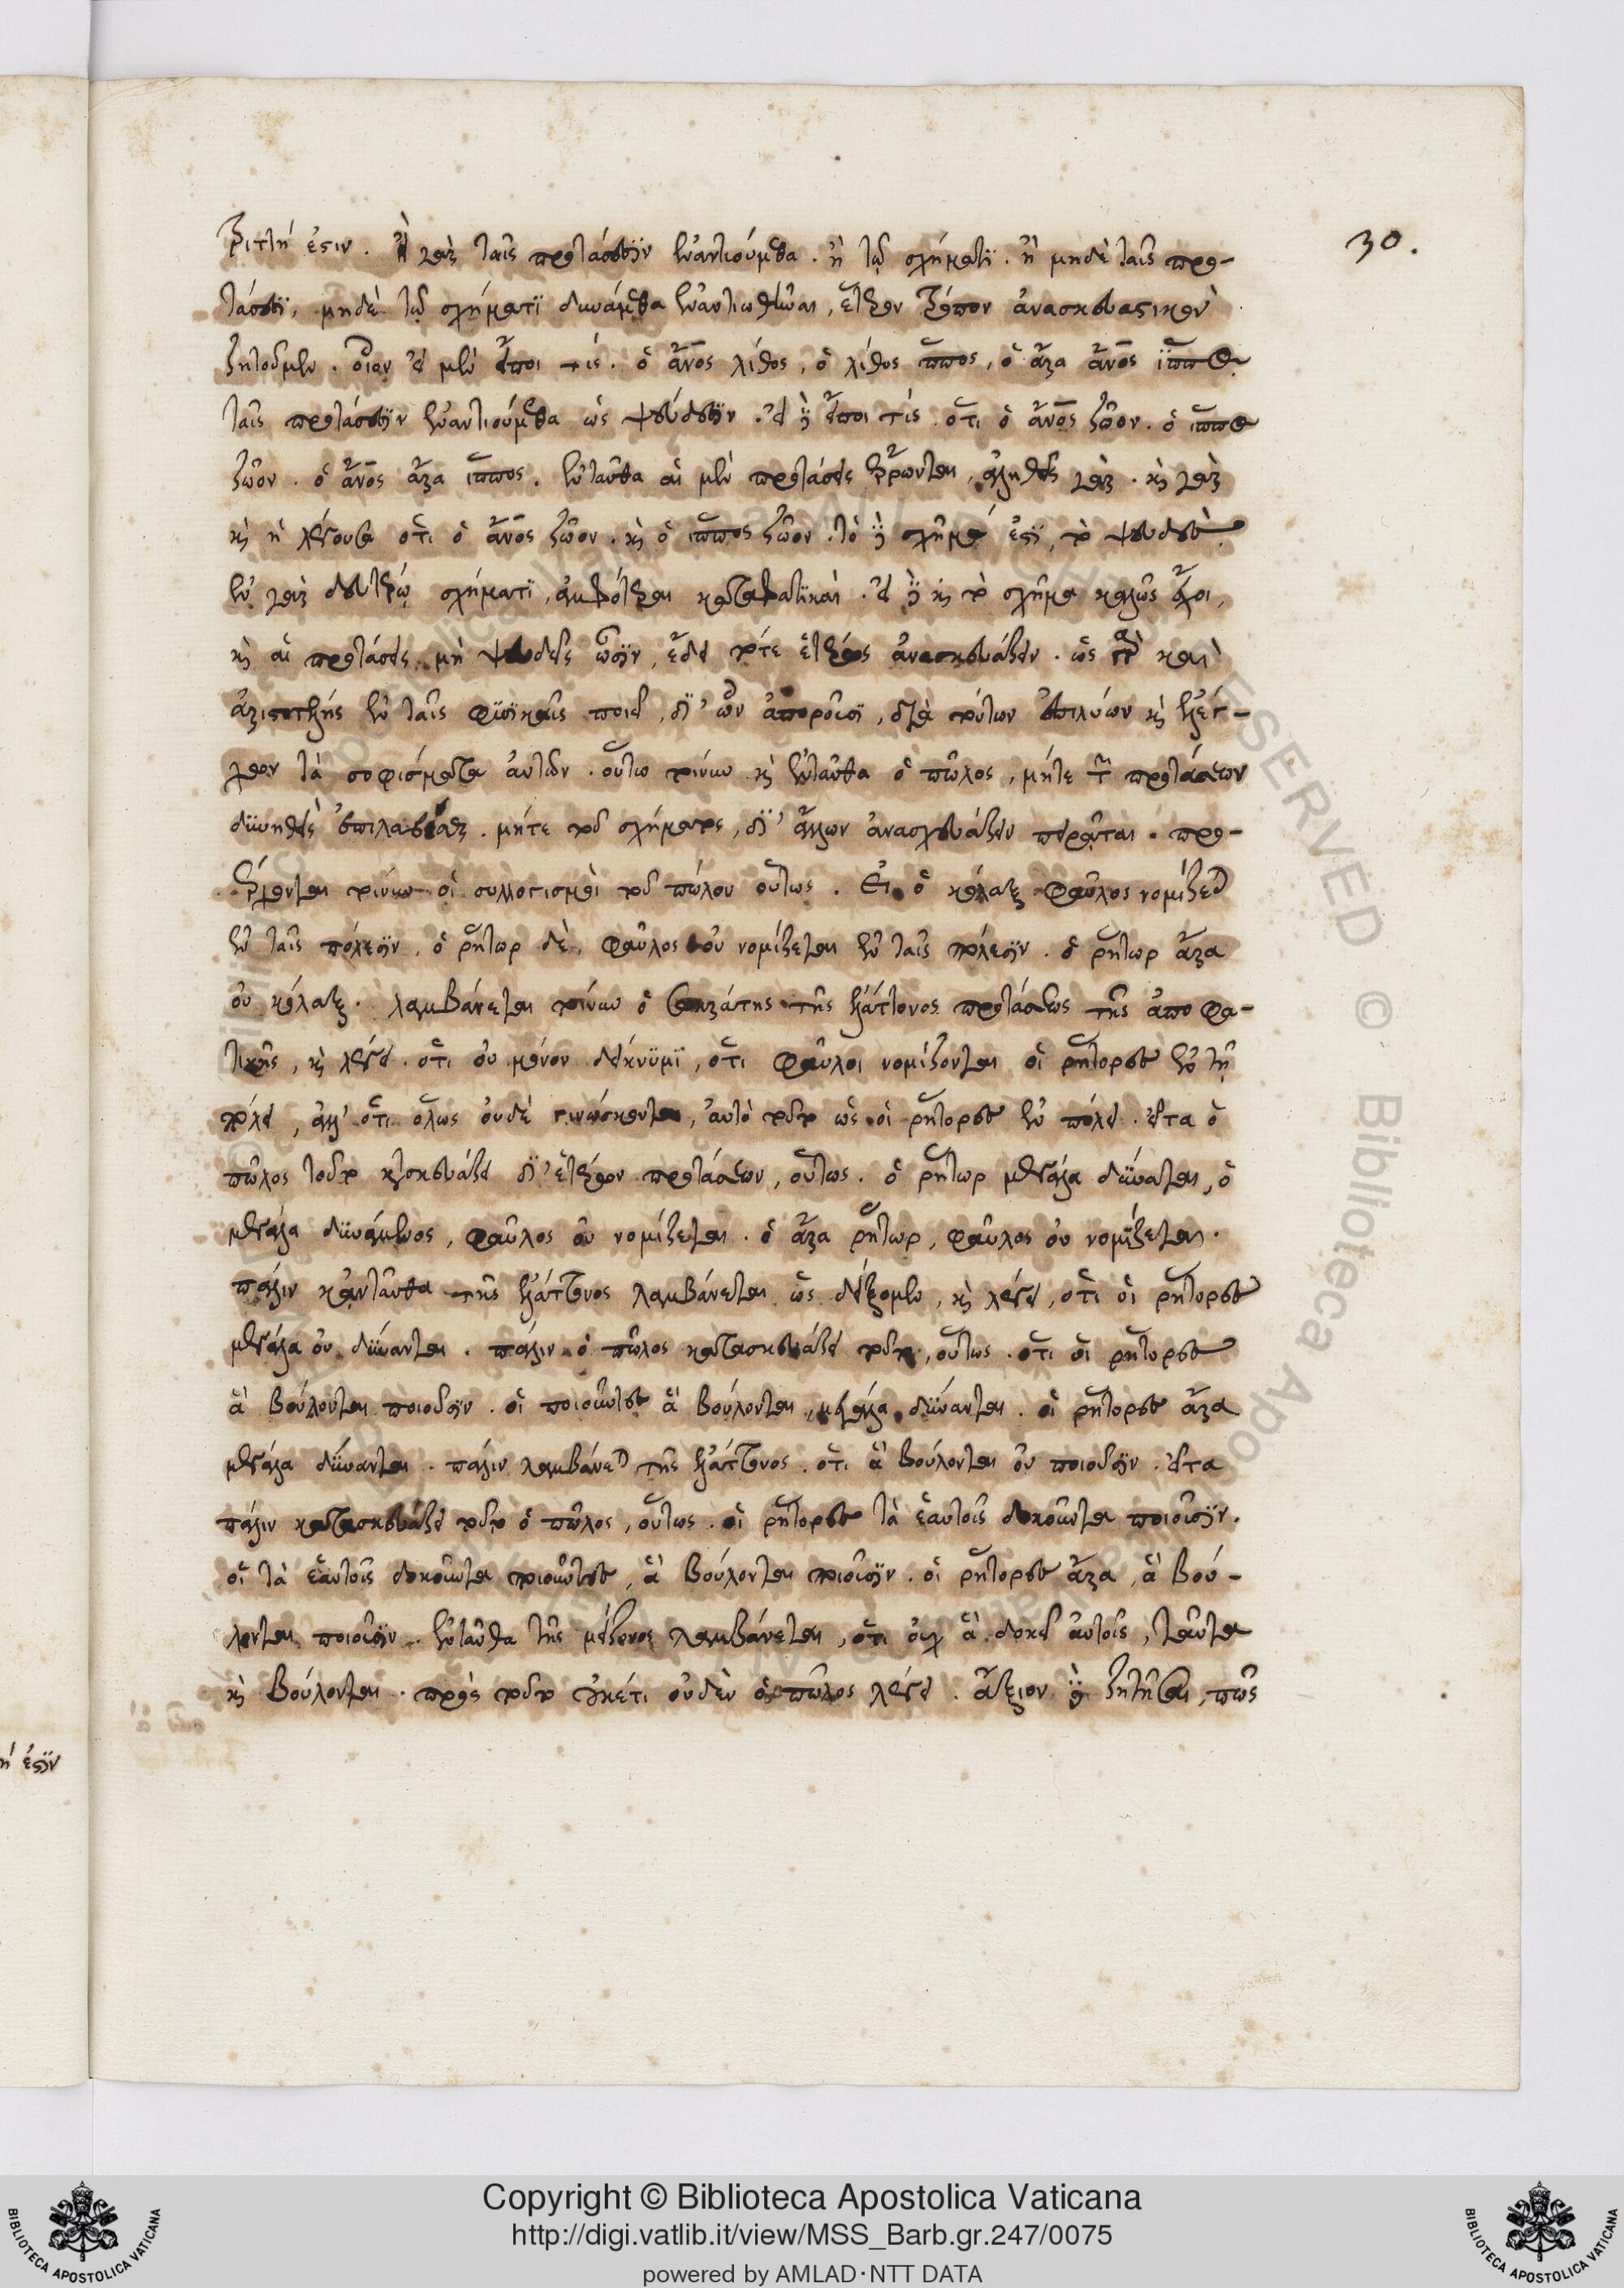 τριττή ἐστιν. ἢ γὰρ ταῖς προτάσεσιν ἐναντιούμεθα. ἢ τῷ σχήματι. ἢ μηδὲ ταῖς προ-
30.
τάσεσι, μηδὲ τῷ σχήματι δυνάμεθα ἐναντιωθῆναι, ἕτερον τρόπον ἀνασκευαστικὸν
ζητοῦμεν. οἷον εἰ μὲν εἴποι τίς. ὁ ἄνος λίθος, ὁ λίθος ἵππος, ὁ ἄρα ἄνος ἵππος.
ταῖς προτάσεσιν ἐναντιούμεθα ὡς ψευδέσιν. εἰ δὲ εἴποι τίς. ὅτι ὁ ἄνος ζῶον. ὁ ἵππος
ζῶον. ὁ ἄνος ἄρα ἵππος. ἐνταῦθα αἱ μὲν προτάσεις ἔρρωνται, ἀληθὴς γὰρ. καὶ γὰρ
καὶ ἡ λέγουσα ὅτι ὁ ἄνος ζῶον. καὶ ὁ ἵππος ζῶον. τὸ δὲ σχῆμά ἐστι, τὸ ψευδές.
ἐν γὰρ δευτέρῳ σχήματι, ἀμφότεραι καταφατικαί. εἰ δὲ καὶ τὸ σχῆμα καλῶς ἔχοι,
καὶ αἱ προτάσεις μὴ ψευδεῖς ὦσιν, ἔδει τότε ἑτέρως ἀνασκευάζειν. ὡς καὶ
ἀριστοτέλης ἐν ταῖς φυσικαῖς ποιεῖ, δι' ὧν ἀποροῦσι, διὰ τούτων ἐπιλύων καὶ ἐλέγ-
χων τὰ σοφίσματα αὐτῶν. οὕτω τοίνυν καὶ ἐνταῦθα ὁ πῶλος, μήτε τῶν προτάσεων
δυνηθεὶς ἐπιλαβέσθαι. μήτε τοῦ σχήματος, δι' ἄλλων ἀνασκευάζειν πειρᾶται. προ-
έρχονται τοίνυν οἱ συλλογισμοὶ τοῦ πώλου οὕτως. Εἰ ὁ κόλαξ φαῦλος νομίζεται
ἐν ταῖς πόλεσιν. ὁ ῥήτωρ δὲ, φαῦλος οὐ νομίζεται ἐν ταῖς πόλεσιν. ὁ ῥήτωρ ἄρα
οὐ κόλαξ. λαμβάνεται τοίνυν ὁ σωκράτης τῆς ἐλάττονος προτάσεως τῆς ἀποφα-
τικῆς, καὶ λέγει. ὅτι οὐ μόνον δείκνυμι, ὅτι φαῦλοι νομίζονται οἱ ῥήτορες ἐν τῇ
πόλει, ἀλλ' ὅτι ὅλως οὐδὲ γινώσκονται, αὐτὸ τοῦτο ὡς οἱ ῥήτορες ἐν πόλει. εἶτα ὁ
πῶλος τοῦτο κατασκευάζει δι' ἑτέρων προτάσεων, οὕτως. ὁ ῥήτωρ μεγάλα δύναται, ὁ
μεγάλα δυνάμενος, φαῦλος οὐ νομίζεται. ὁ ἄρα ῥήτωρ, φαῦλος οὐ νομίζεται.
πάλιν κἀνταῦθα τῆς ἐλάττονος λαμβάνεται ὡς δείξομεν, καὶ λέγει, ὅτι οἱ ῥήτορες
μεγάλα οὐ δύνανται. πάλιν ὁ πῶλος κατασκευάζει τοῦτο, οὕτως. ὅτι οἱ ῥήτορες
ἃ βούλονται ποιοῦσιν. οἱ ποιοῦντες ἃ βούλονται, μεγάλα δύνανται. οἱ ῥήτορες ἄρα
μεγάλα δύνανται. πάλιν λαμβάνεται τῆς ἐλάττονος. ὅτι ἃ βούλονται οὐ ποιοῦσιν. εἶτα
πάλιν κατασκευάζει τοῦτο ὁ πῶλος, οὕτως. οἱ ῥήτορες τὰ ἑαυτοῖς δοκοῦντα ποιοῦσιν.
οἱ τὰ ἑαυτοῖς δοκοῦντα ποιοῦντες, ἃ βούλονται ποιοῦσιν. οἱ ῥήτορες ἄρα, ἃ βού-
λονται ποιοῦσιν. ἐνταῦθα τῆς μείζονος λαμβάνεται, ὅτι οὐχ ἃ δοκεῖ αὐτοῖς, ταῦτα
καὶ βούλονται. πρὸς τοῦτο οὐκέτι οὐδὲν ὁ πῶλος λέγει. ἄξιον δὲ ζητῆσαι, πῶς
ή ἐστιν
Copyright © Biblioteca Apostolica Vaticana
http://digi.vatlib.it/view/MSS_Barb.gr.247/0075
powered by AMLAD·NTT DATA